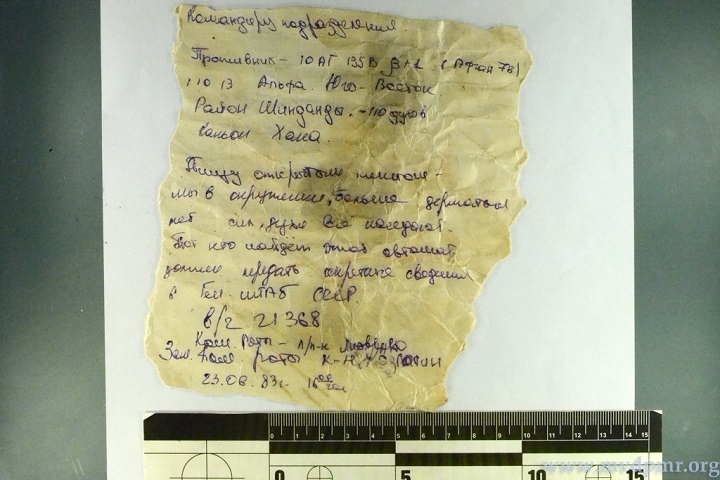 Командиру подразделения.
Противник - 10 АГ 135В β+2 (Афган 7в)
11013 Альфа Юго-Восток
Район Шинданды. - 110 духов
Каньон Хана.
Пишу открытым текстом -
мы в окружении, больше держаться
нет сил, духи все наседают.
Вот кто найдет этот автомат
записи передать секретные сведения
в Ген. штаб СССР.
в/ч 21368
Ком. Роты - п/п-к
Зам. Ком. роты К-Н
23.06.83г. 16 00
0 1 2 3 4 5 6 7 8 9 10 11 12 13 14 15
0 5 10 15
www.mvdpmr.org